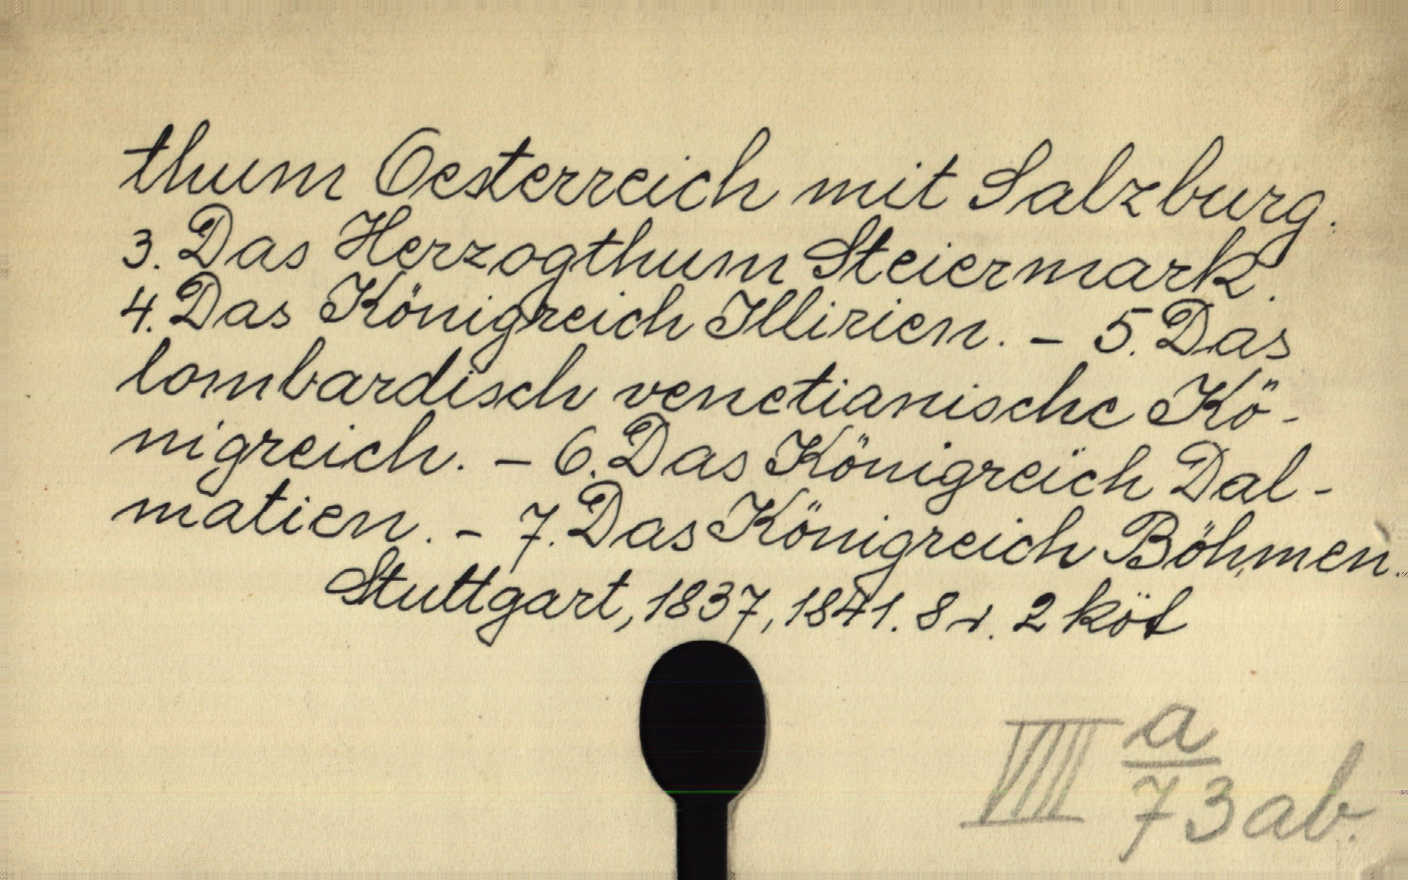 thum Oesterreich mit Salzburg.
3. Das Herzogthum Steiermark.
4. Das Königreich Illirien. – 5. Das
lombardisch venetianische Kö-
nigreich. – 6. Das Königreich Dal-
matien. – 7. Das Königreich Böhmen.
Stuttgart, 1837, 1841. 8 r. 2 köt
VIII a/73 ab.